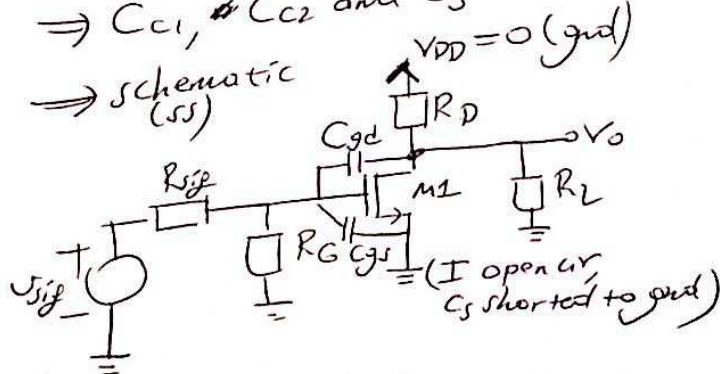 ⇒ Cc1, Cc2 and Cs
VDD = 0 (gnd)
⇒ schematic
(ss)
RD
Cgd
Vo
Rsig
M1
RL
RG
Cgs
+
Vsig
−
(I open cir,
Cs shorted to gnd)